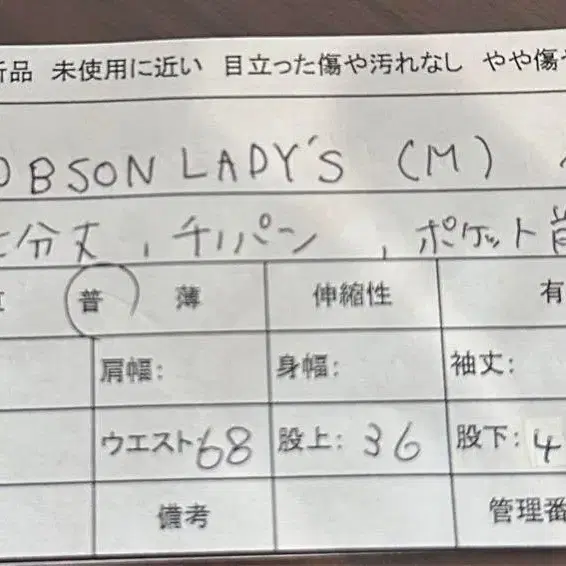 新品 未使用に近い 目立った傷や汚れなし やや傷
OBSON LADY'S (M)
七分丈, チノパン , ポケット
普 薄 伸縮性 有
肩幅: 身幅: 袖丈:
ウエスト 68 股上: 36 股下: 4
備考 管理番